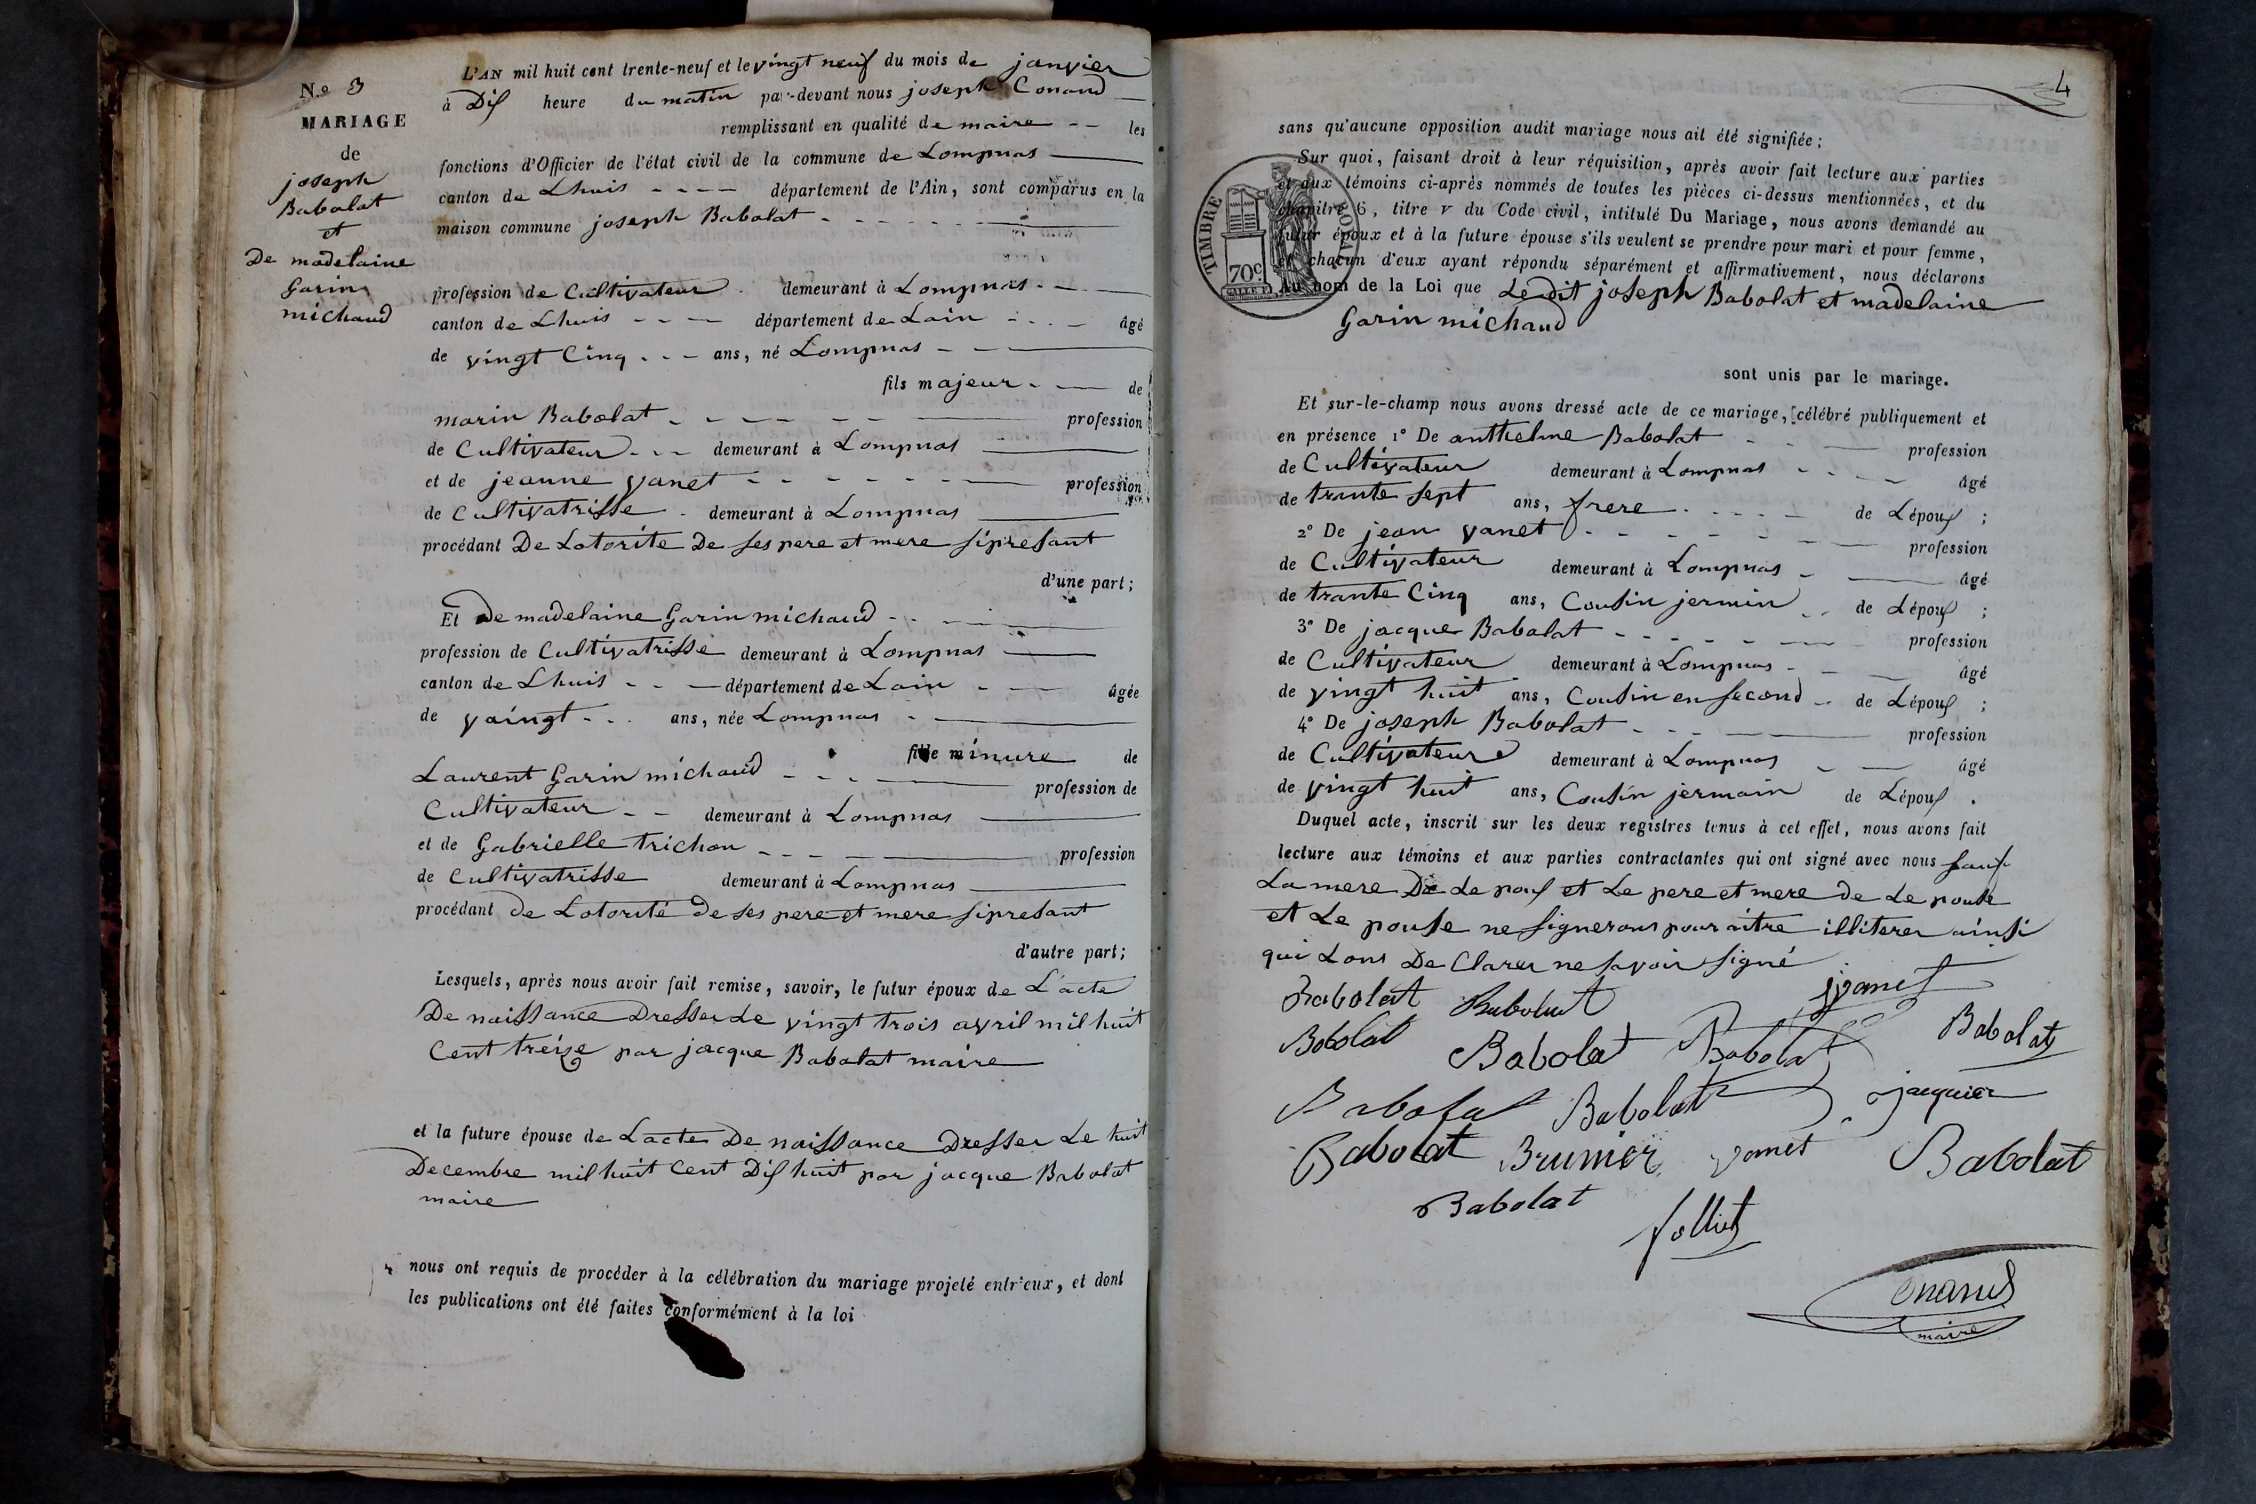 N.o 3
MARIAGE
de
joseph
Babolat
et
De madelaine
Garin
michaud
L'AN mil huit cent trente-neuf et le vingt neuf du mois de janvier
à Dix heure du matin par-devant nous joseph Conand
remplissant en qualité de maire les
fonctions d'Officier de l'état civil de la commune de Lompnas
canton de Lhuis département de l'Ain, sont comparus en la
maison commune joseph Babolat
profession de Cultivateur demeurant à Lompnas
canton de Lhuis département de Lain âgé
de vingt Cinq ans, né Lompnas
fils majeur de
marin Babolat profession
de Cultivateur demeurant à Lompnas
et de jeanne yanet profession
de Cultivatrisse demeurant à Lompnas
procédant De Lotorite De ses pere et mere sipresant
d'une part;
Et De madelaine Garin michaud
profession de Cultivatrisse demeurant à Lompnas
canton de Lhuis département de Lain âgée
de vaingt ans, née Lompnas
fille minure de
Laurent Garin michaud profession de
Cultivateur demeurant à Lompnas
et de Gabrielle trichon profession
de Cultivatrisse demeurant à Lompnas
procédant de Lotorité de ses pere et mere sipresant
d'autre part;
Lesquels, après nous avoir fait remise, savoir, le futur époux de L'acte
De naissance Dresser Le vingt trois avril mil huit
Cent treize par jacque Babolat maire
et la future épouse de Lacte De naissance Dresser Le huit
Decembre mil huit Cent Dix huit par jacque Babolat
maire
nous ont requis de procéder à la célébration du mariage projeté entr'eux, et dont
les publications ont été faites conformément à la loi
4
sans qu'aucune opposition audit mariage nous ait été signifiée;
Sur quoi, faisant droit à leur réquisition, après avoir fait lecture aux parties
et aux témoins ci-après nommés de toutes les pièces ci-dessus mentionnées, et du
chapitre 6, titre V du Code civil, intitulé Du Mariage, nous avons demandé au
futur époux et à la future épouse s'ils veulent se prendre pour mari et pour femme,
et chacun d'eux ayant répondu séparément et affirmativement, nous déclarons
Au nom de la Loi que Le dit joseph Babolat et madelaine
Garin michaud
TIMBRE ROYAL
70c
sont unis par le mariage.
Et sur-le-champ nous avons dressé acte de ce mariage, célébré publiquement et
en présence 1° De anthelme Babolat profession
de Cultivateur demeurant à Lompnas âgé
de trante sept ans, frere de Lépoux ;
2° De jean yanet profession
de Cultivateur demeurant à Lompnas âgé
de trante Cinq ans, Cousin jermin de Lépoux ;
3° De jacque Babolat profession
de Cultivateur demeurant à Lompnas âgé
de vingt huit ans, Cousin en second de Lépoux ;
4° De joseph Babolat profession
de Cultivateur demeurant à Lompnas âgé
de vingt huit ans, Cousin jermain de Lépoux .
Duquel acte, inscrit sur les deux registres tenus à cet effet, nous avons fait
lecture aux témoins et aux parties contractantes qui ont signé avec nous sauf
La mere De Le poux et Le pere et mere de Le pouse
et Le pouse ne signerons pour aitre illiterer ainsi
qui Lons De Clarer ne savoir signé
Babolat Babolat jyanet
Babolat Babolat Babolat Babolat
Babolat Babolat jacquier
Babolat Brunier yanet Babolat
Babolat
folliet
Conand
maire